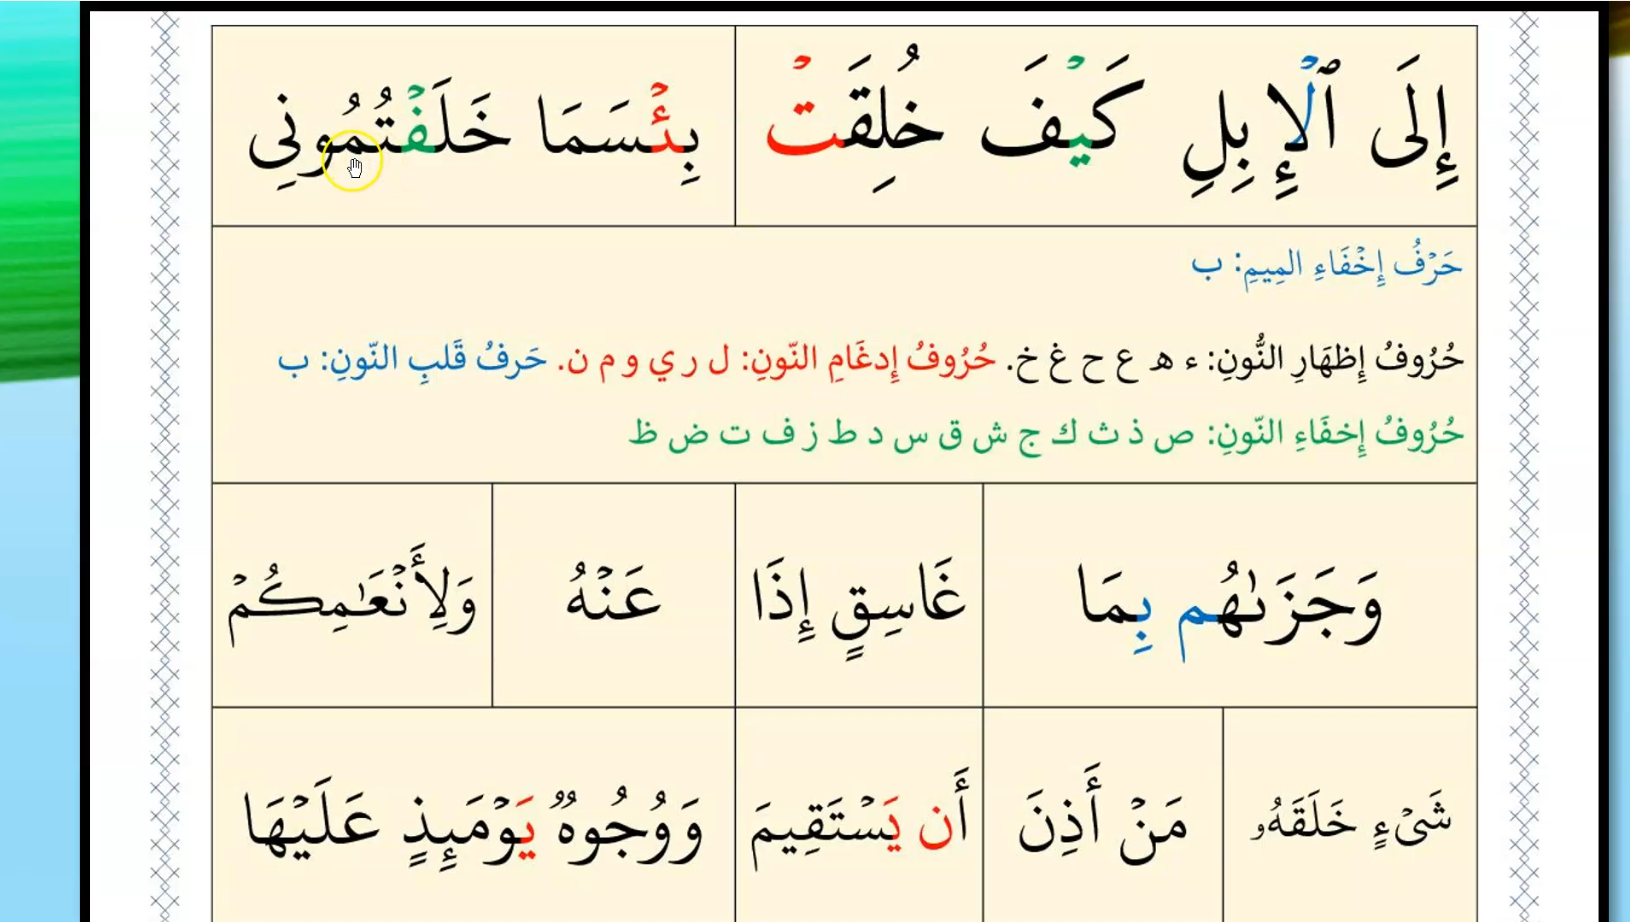 إِلَى ٱلۡإِبِلِ كَيۡفَ خُلِقَتۡ
بِئۡسَمَا خَلَفۡتُمُونِى
حَرۡفُ إِخۡفَاءِ المِيمِ: ب
حُرُوفُ إِظهَارِ النُّونِ: ء ه ع ح غ خ. حُرُوفُ إِدغَامِ النّونِ: ل ر ي و م ن. حَرفُ قَلبِ النّونِ: ب
حُرُوفُ إِخفَاءِ النّونِ: ص ذ ث ك ج ش ق س د ط ز ف ت ض ظ
وَجَزَىٰهُم بِمَا
غَاسِقٍ إِذَا
عَنۡهُ
وَلِأَنۡعَٰمِكُمۡ
شَىۡءٍ خَلَقَهُۥ
مَنۡ أَذِنَ
أَن يَسۡتَقِيمَ
وَوُجُوهٌ يَوۡمَئِذٍ عَلَيۡهَا